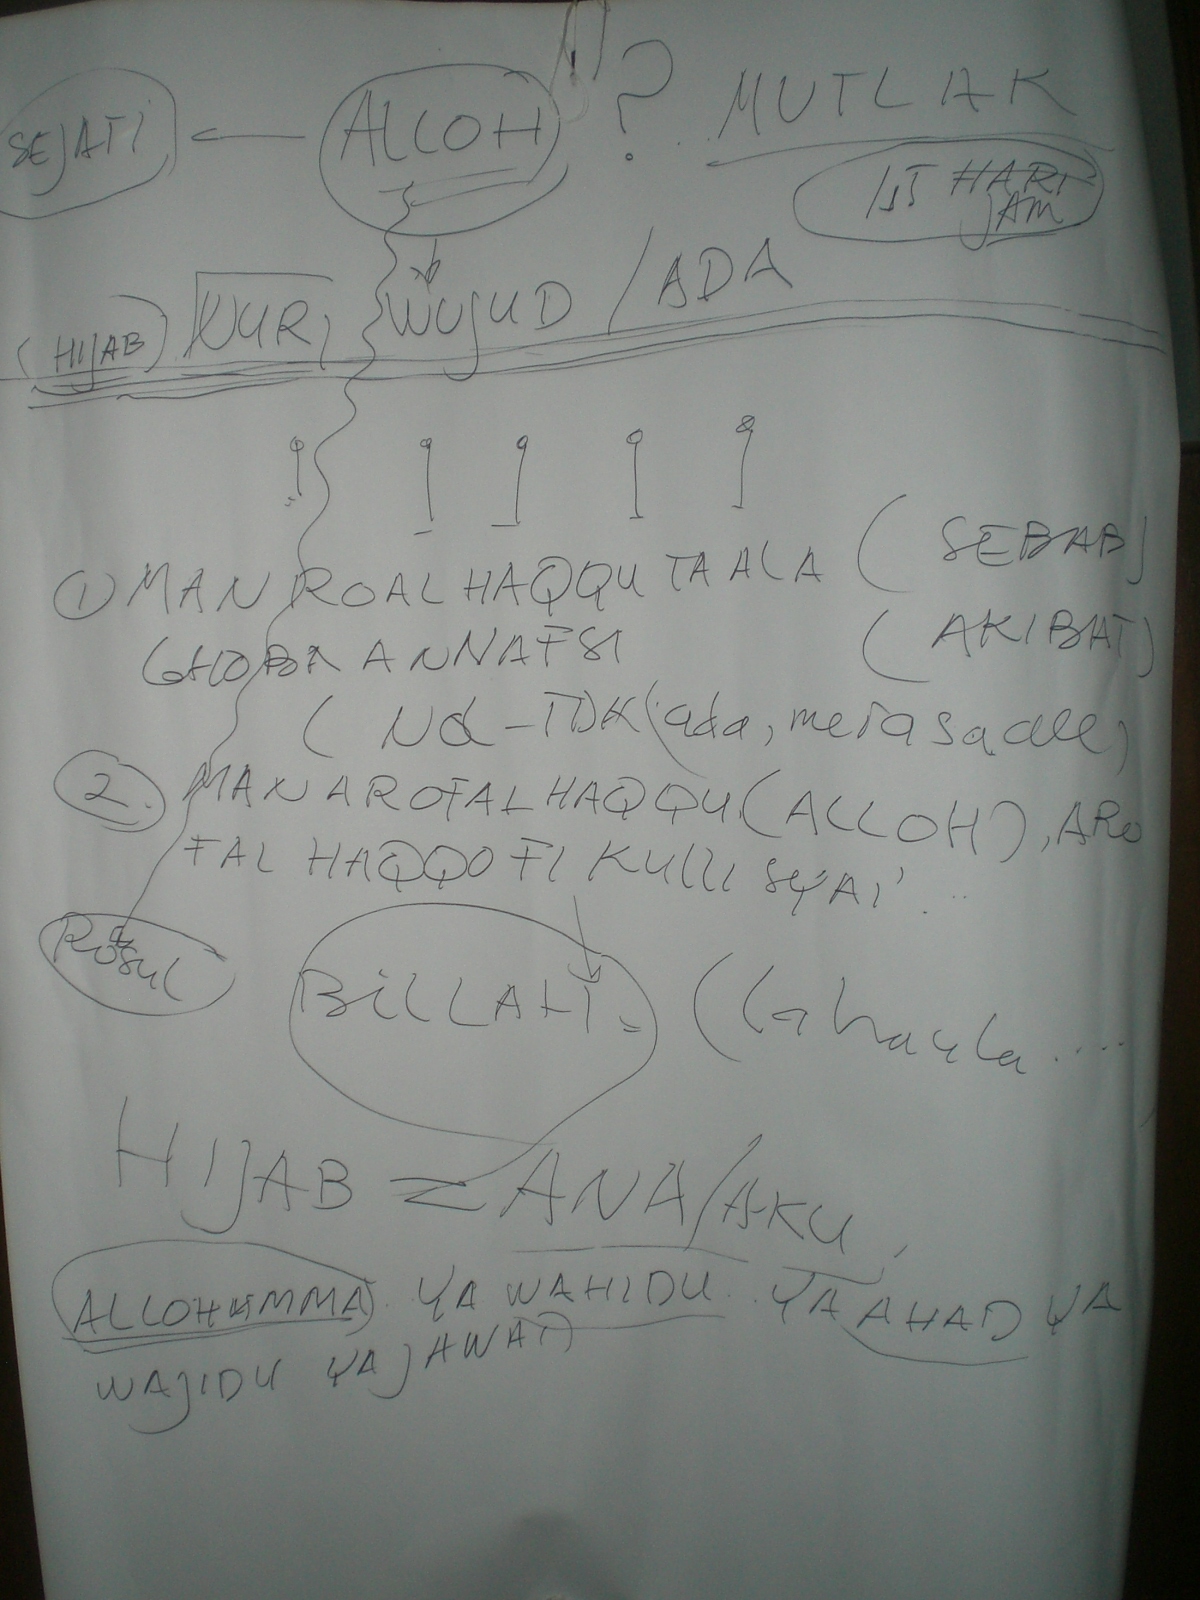 SEJATI ← ALLOH ? MUTLAK
HARI
JAM
(HIJAB) NUR, WUJUD / ADA
① MAN ROAL HAQQU TAALA (SEBAB)
GHOBA ANNAFSI (AKIBAT)
(Nd - TDK (ada, merasa ada)
2. MAN AROFAL HAQQU (ALLOH), ARO
FAL HAQQO FI KULLI SYAI' ...
Rosul BILLAHI. (Lahaula ....
HIJAB = ANA/AKU,
ALLOHUMMA YA WAHIDU YA AHAD YA
WAJIDU YA JAWAD